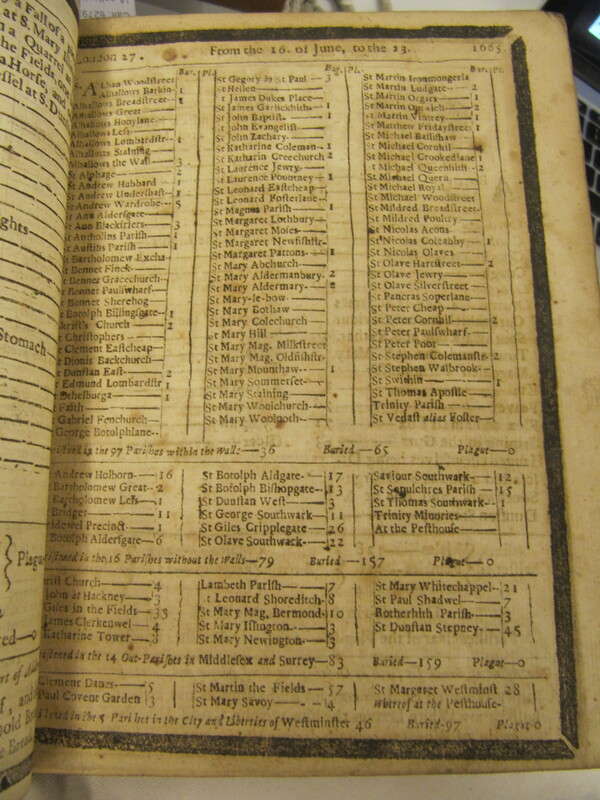 London 27. From the 16. of June, to the 23. 1665
Bur. Pl. Bur. Pl. Bur. Pl.
St Alban Woodstreet
Alhallows Barkin— 1
Alhallows Breadstreet— 1
Alhallows Great
Alhallows Honylane
Alhallows Less
Alhallows Lombardstr— 1
Alhallows Staining
Alhallows the Wall— 3
St Alphage— 2
St Andrew Hubbard 1
St Andrew Undershaft— 1
St Andrew Wardrobe— 5
St Ann Aldersgate
St Ann Blackfriers— 3
St Antholins Parish— 1
St Austins Parish— 1
St Bartholomew Excha-
St Bennet Finck
St Bennet Gracechurch
St Bennet Paulswharf
St Bennet Sherehog
St Botolph Billingsgate— 1
Christ's Church— 2
St Christophers
St Clement Eastcheap
St Dionis Backchurch
St Dunstan East— 2
St Edmund Lombardstr 1
St Ethelburga— 1
St Faith
St Gabriel Fenchurch
St George Botolphlane
St Gegory by St Paul— 3
St Hellen
St James Dukes Place
St James Garlickhith— 1
St John Baptist— 1
St John Evangelist
St John Zachary
St Katharine Coleman— 1
St Katharin Creechurch 2
St Laurence Jewry
St Laurence Pountney— 1
St Leonard Eastcheap
St Leonard Fosterlane
St Magnus Parish— 1
St Margaret Lothbury
St Margaret Moses
St Margaret Newfishstr.
St Margaret Pattons— 1
St Mary Abchurch
St Mary Aldermanbury— 2
St Mary Aldermary— 2
St Mary-le-bow
St Mary Bothaw
St Mary Colechurch
St Mary Hill
St Mary Mag. Milkstreet
St Mary Mag. Oldfishstr
St Mary Mounthaw— 1
St Mary Sommerset
St Mary Staining
St Mary Woolchurch
St Mary Woolnoth
St Martin Ironmongerla
St Martin Ludgate— 2
St Martin Orgars— 1
St Martin Outwich— 2
St Martin Vintrey— 1
St Matthew Fridaystreet 1
St Michael Bassishaw
St Michael Cornhil
St Michael Crookedlane 1
St Michael Queenhith— 2
St Michael Quern
St Michael Royal
St Michael Woodstreet
St Mildred Breadstreet
St Mildred Poultry
St Nicolas Acons
St Nicolas Coleabby— 1
St Nicolas Olaves
St Olave Hartstreet— 2
St Olave Jewry
St Olave Silverstreet
St Pancras Soperlane
St Peter Cheap
St Peter Cornhil— 2
St Peter Paulswharf
St Peter Poor
St Stephen Colemanstr— 2
St Stephen Walbrook
St Swithin— 1
St Thomas Apostle
Trinity Parish
St Vedast alias Foster
in the 97 Parishes within the Walls— 36 Buried— 65 Plague— 0
St Andrew Holborn— 16
Bartholomew Great— 2
Bartholomew Less— 1
Bridget— 11
Bridewel Precinct— 1
Botolph Aldersgate— 6
St Botolph Aldgate— 17
St Botolph Bishopgate— 13
St Dunstan West— 3
St George Southwark— 11
St Giles Cripplegate— 26
St Olave Southwack— 22
Saviour Southwark— 12
St Sepulchres Parish— 15
St Thomas Southwark— 1
Trinity Minories
At the Pesthouse
in the 16 Parishes without the Walls— 79 Buried— 157 Plague— 0
Christ Church— 4
John at Hackney— 3
Giles in the Fields— 33
James Clerkenwel— 4
Katharine Tower— 8
Lambeth Parish— 7
St Leonard Shoreditch— 8
St Mary Mag, Bermond— 10
St Mary Islington— 3
St Mary Newington— 3
St Mary Whitechappel— 21
St Paul Shadwel— 7
Rotherhith Parish— 3
St Dunstan Stepney— 45
in the 14 Out-Parishes in Middlesex and Surrey— 83 Buried— 159 Plague— 0
Clement Danes— 5
Paul Covent Garden 3
St Martin the Fields— 57
St Mary Savoy— 4
St Margaret Westminst 28
Whereof at the Pesthouse-
in the 5 Parishes in the City and Liberties of Westminster 46 Buried- 97 Plague- 0